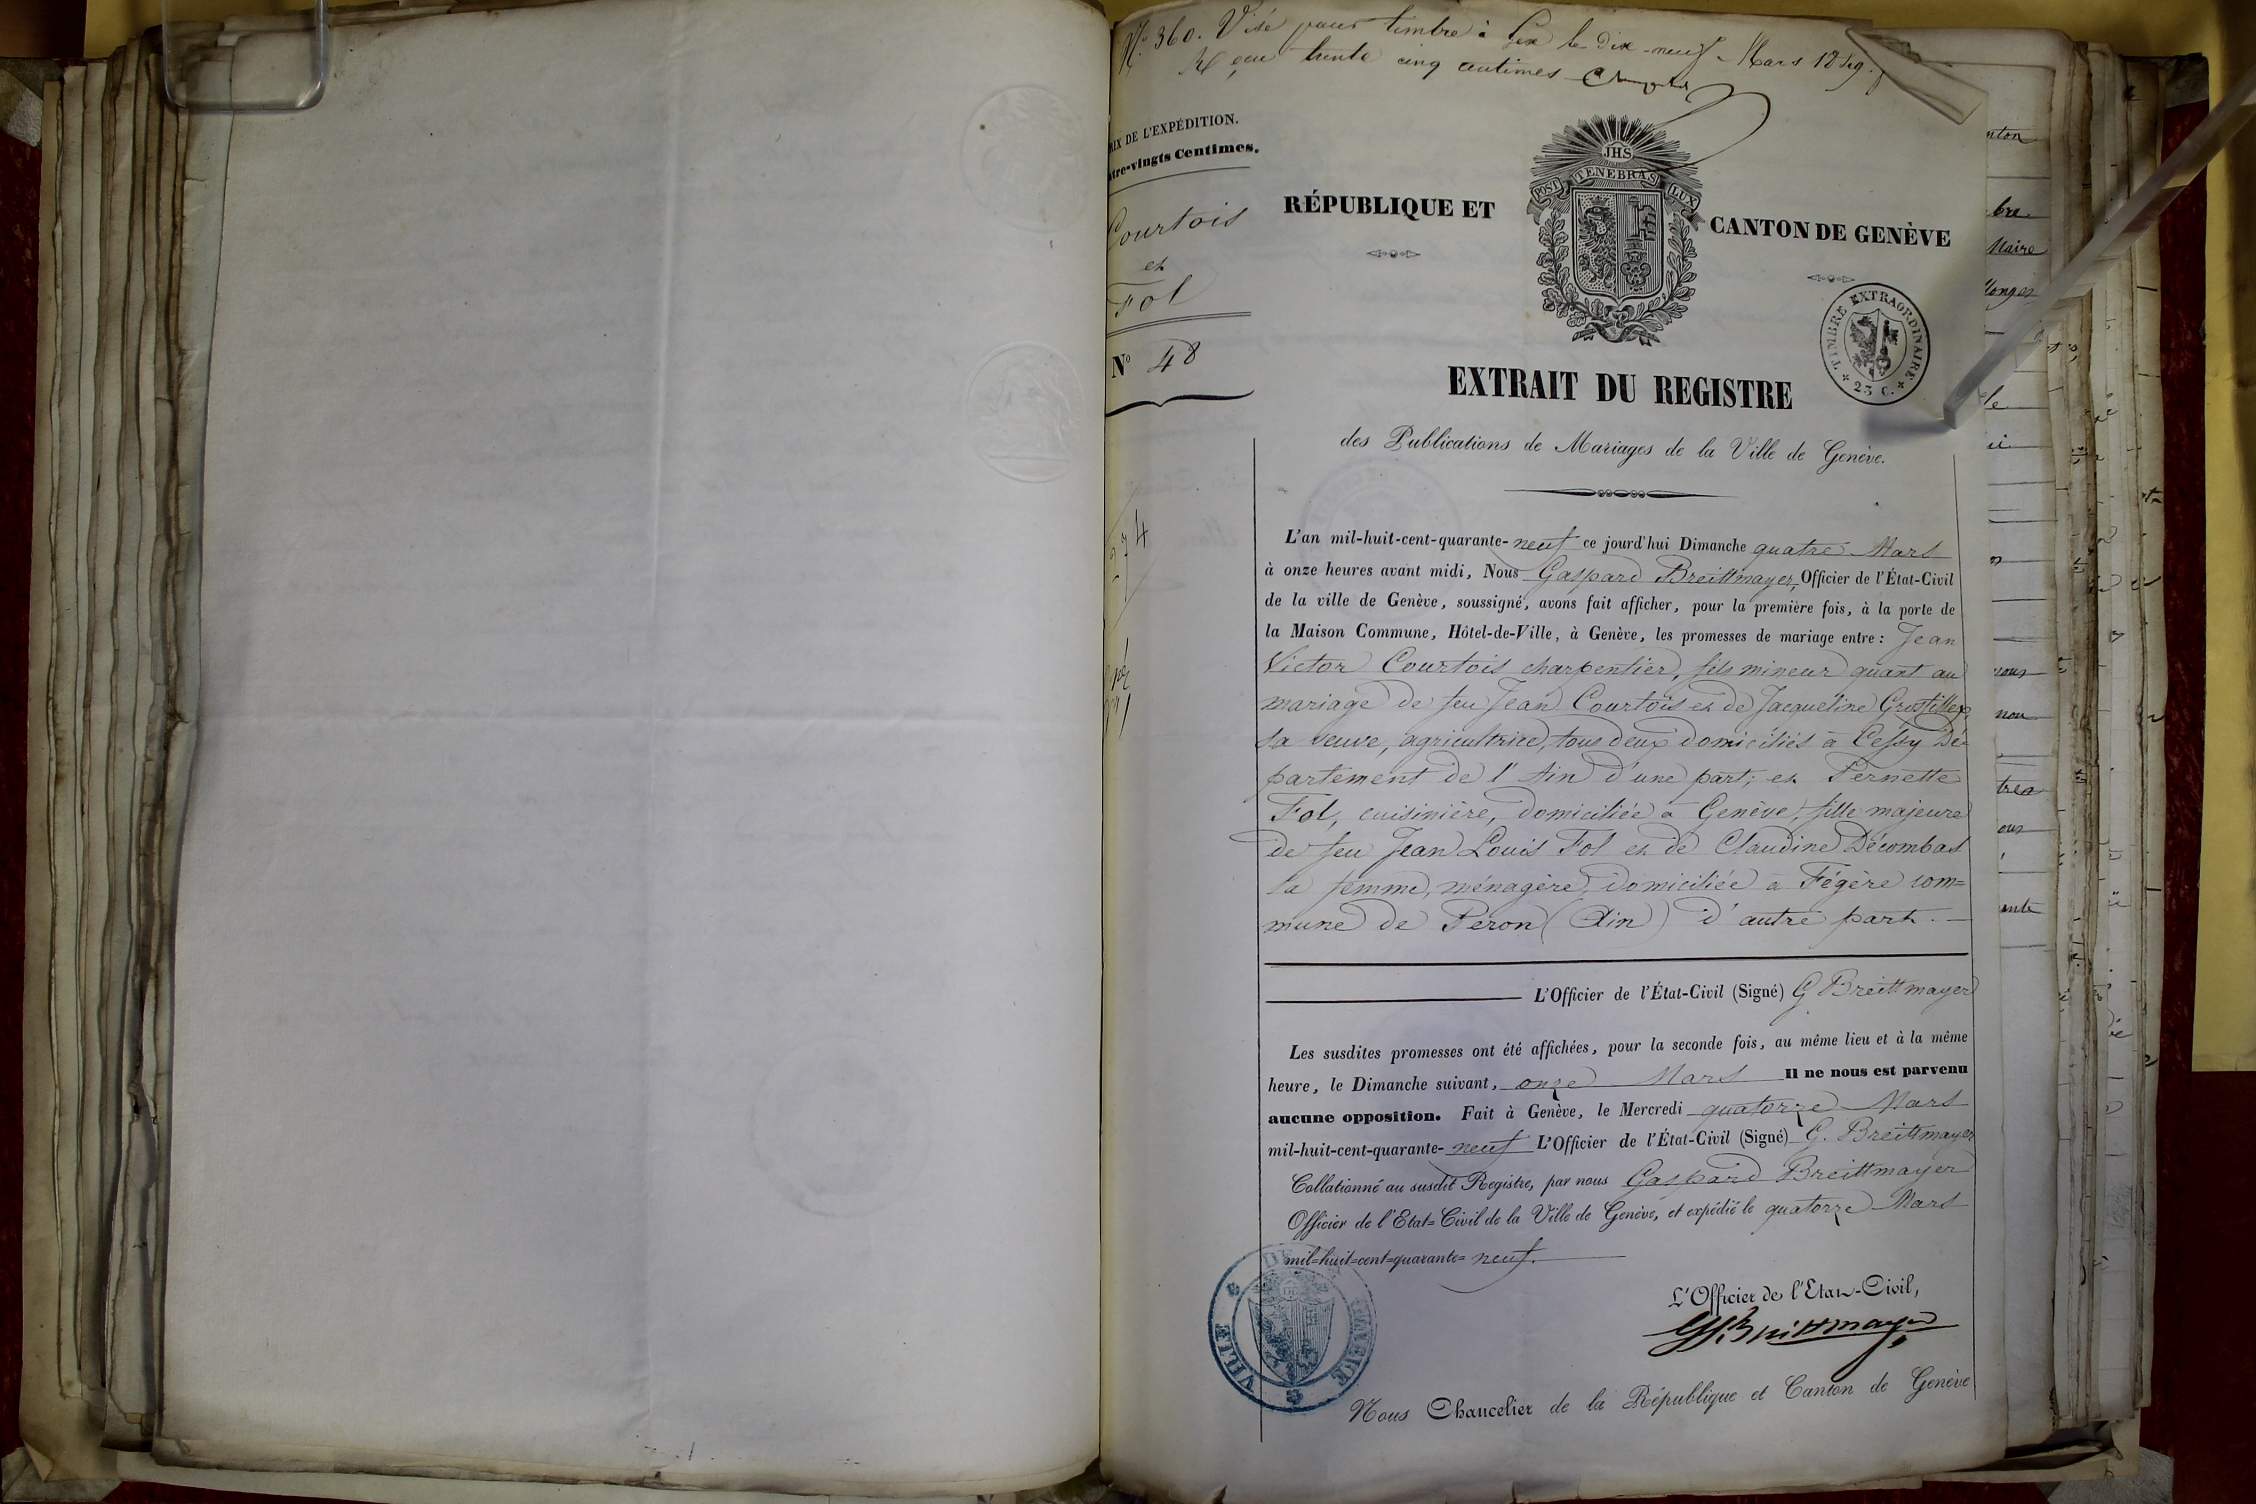 N.° 360. Visé pour timbre à Gex le dix-neuf Mars 1849.
Reçu trente cinq centimes
RIX DE L'EXPÉDITION.
atre-vingts Centimes.
Courtois
et
Fol
N° 48
274
JHS
POST TENEBRAS LUX
RÉPUBLIQUE ET CANTON DE GENÈVE
TIMBRE EXTRAORDINAIRE
* 25 C. *
EXTRAIT DU REGISTRE
des Publications de Mariages de la Ville de Genève.
L'an mil-huit-cent-quarante-neuf ce jourd'hui Dimanche quatre Mars
à onze heures avant midi, Nous Gaspard Breittmayer, Officier de l'État-Civil
de la ville de Genève, soussigné, avons fait afficher, pour la première fois, à la porte de
la Maison Commune, Hôtel-de-Ville, à Genève, les promesses de mariage entre: Jean
Victor Courtois charpentier, fils mineur quant au
mariage de feu Jean Courtois et de Jacqueline Grosfillex
sa veuve, agricultrice, tous deux domiciliés à Cessy Dé-
partement de l'Ain d'une part; et Pernette
Fol, cuisinière, domiciliée à Genève, fille majeure
de feu Jean Louis Fol et de Claudine Décombas
sa femme, ménagère, domiciliée à Fégère com=
mune de Peron (Ain) d'autre part. —
L'Officier de l'État-Civil (Signé) G. Breittmayer
Les susdites promesses ont été affichées, pour la seconde fois, au même lieu et à la même
heure, le Dimanche suivant, onze Mars Il ne nous est parvenu
aucune opposition. Fait à Genève, le Mercredi quatorze Mars
mil-huit-cent-quarante-neuf L'Officier de l'État-Civil (Signé) G. Breittmayer
Collationné au susdit Registre, par nous Gaspard Breittmayer
Officier de l'Etat=Civil de la Ville de Genève, et expédié le quatorze Mars
mil=huit=cent=quarante=neuf.
VILLE DE GENEVE
L'Officier de l'Etat-Civil,
G. Breittmayer
Nous Chancelier de la République et Canton de Genève
nton
bre
Maire
longes
le
ui
vous
nou
tres
our
ente